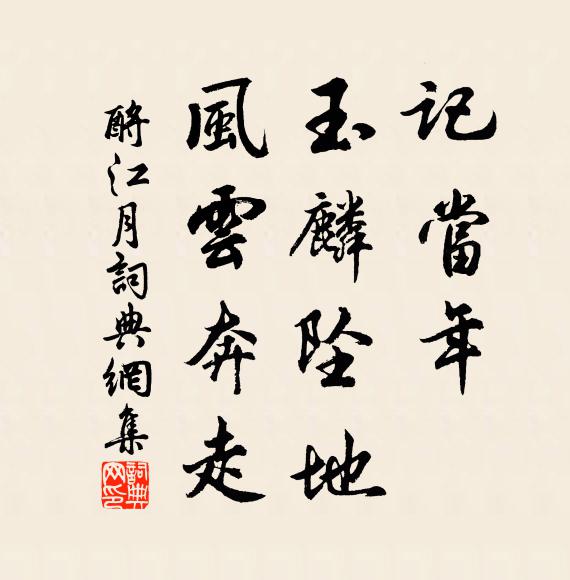 記當年
玉麟墜地
風雲奔走
酹江月詞典網集
詞典網印